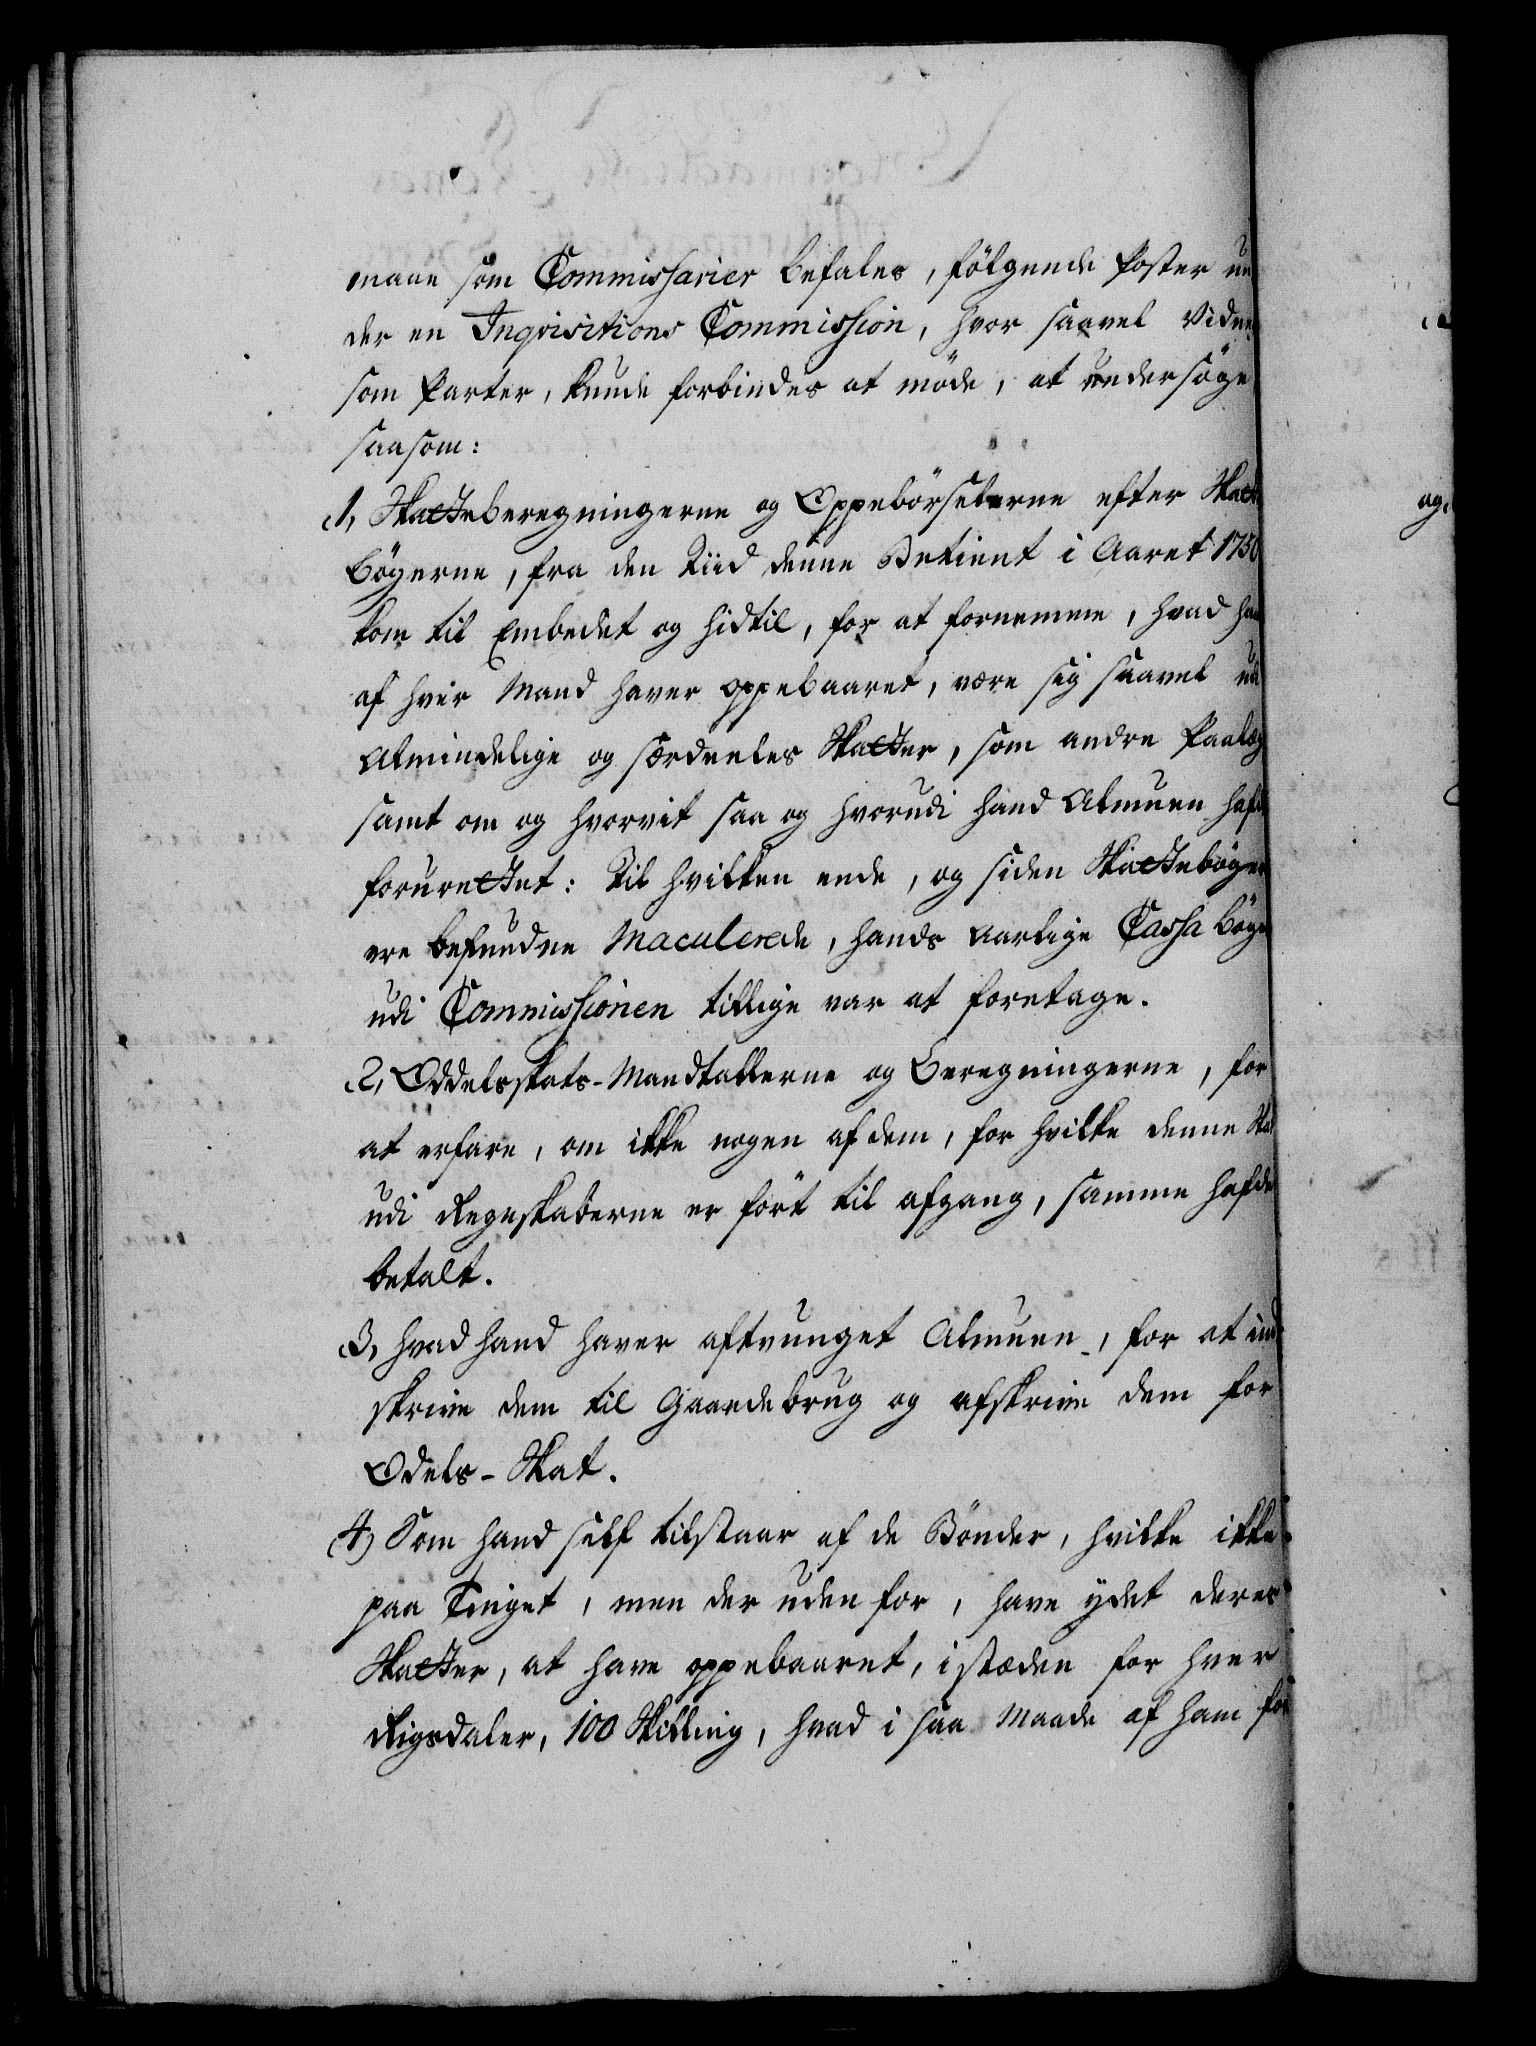 maae som Commissarier befales, følgende Poster un
der en Inqvisitions Commission, hvor saavel Vidne
som Parter, kunde forbindes at møde, at undersøge
saasom:
1, Skatteberegningerne og Oppebørselerne efter Skatte
bøgerne, fra den Tiid denne Betient i Aaret 1750
kom til Embedet og hidtil, for at fornemme, hvad ha
af hver Mand haver oppebaaret, være sig saavel udi
Almindelige og særdeeles Skatter, som andre Paalæg
samt om og hvorvit saa og hvorudi hand Almuen hafde
forurettet: Til hvilken ende, og siden Skattebøger
ere befundne Maculerede, hands aarlige Cassa Bøge
udi Commissionen tillige var at foretage.
2, Oddelsskats-Mandtallerne og Beregningerne, for
at erfare, om ikke nogen af dem, for hvilke denne Skat
udi Regnskaberne er ført til afgang, samme hafde
betalt.
3, hvad hand haver aftvunget Almuen, for at ind
skrive dem til Gaardebrug og afskrive dem for
Odels-Skat.
4) Som hand self tilstaar af de Bønder, hvilke ikke
paa Tinget, men der uden for, have ydet deres
Skatter, at have oppebaaret, i stæden for hver
Rigsdaler, 100 Skilling, hvad i saa Maade af ham for
og